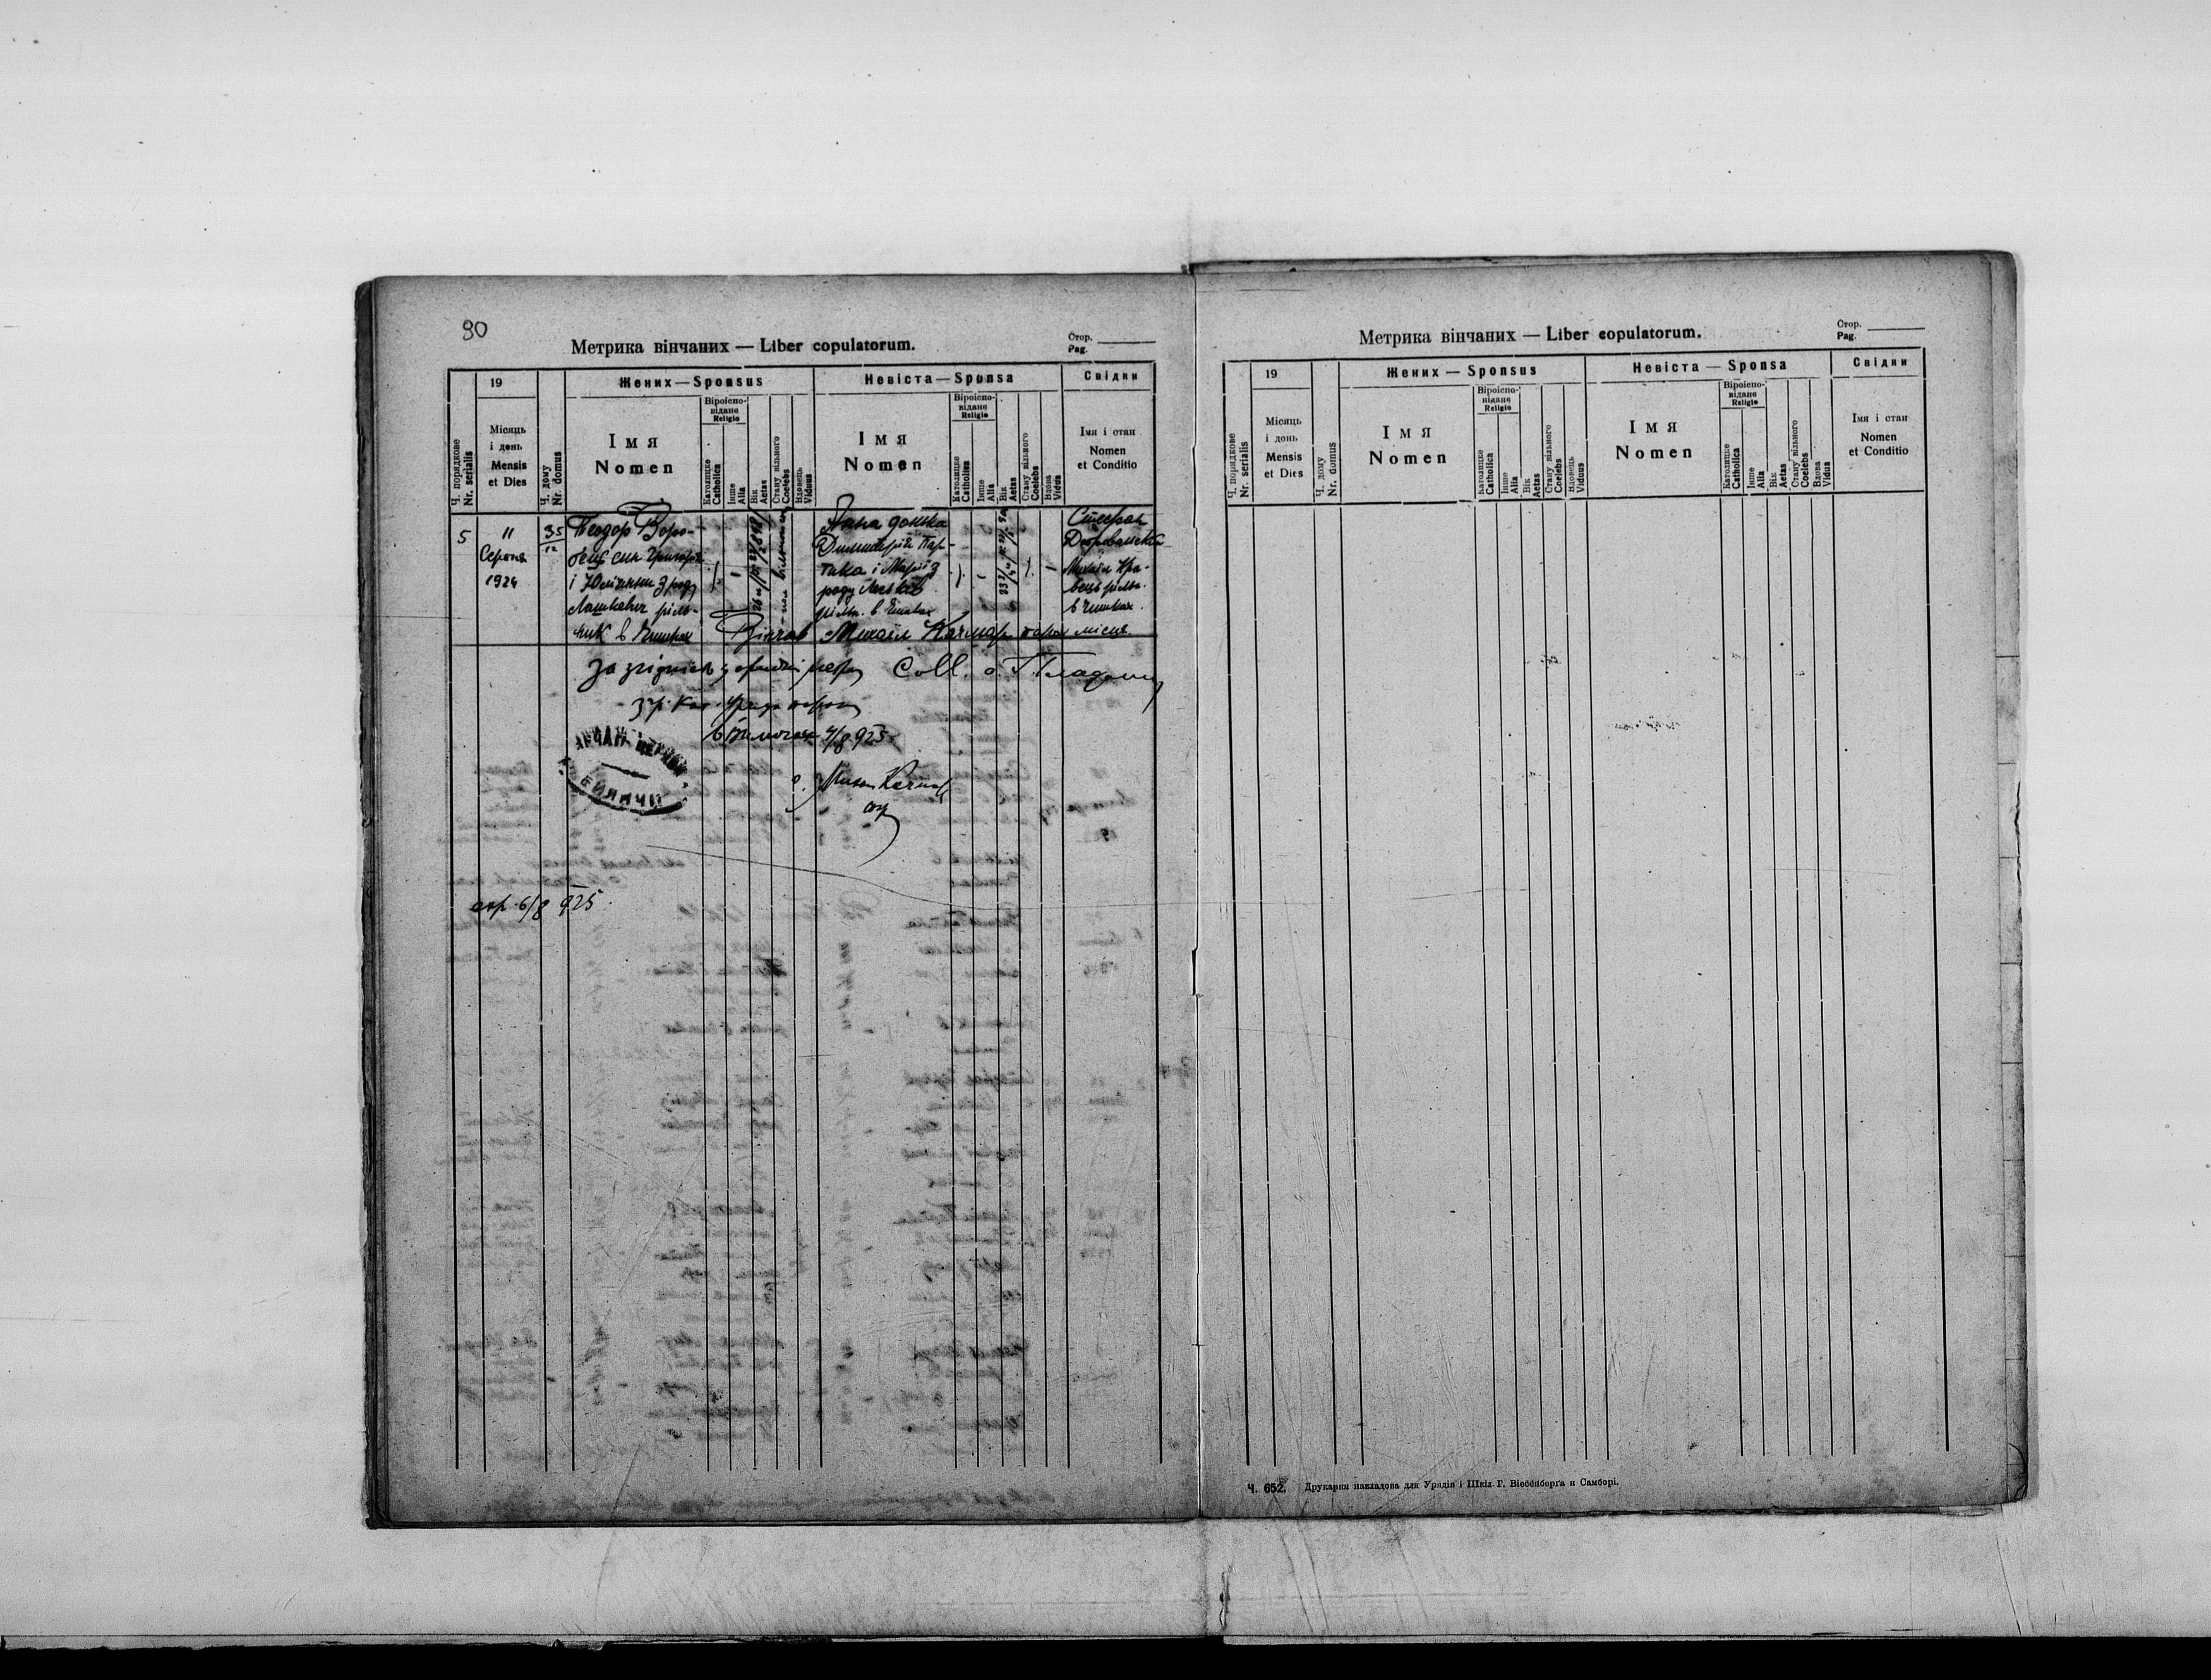 90
Метрика вінчаних — Liber copulatorum.
Стор.
Pag.
Ч. порядкове
Nr. serialis
19
Місяць
і день
Mensis
et Dies
Ч. дому
Nr. domus
Жених — Sponsus
Імя
Nomen
Віроіспо-
відане
Religio
Католицке
Catholica
Інше
Alia
Вік
Aetas
Стану вільного
Coelebs
Вдовець
Viduus
Невіста — Sponsa
Імя
Nomen
Віроіспо-
відане
Religio
Католицке
Catholica
Інше
Alia
Вік
Aetas
Стану вільного
Coelebs
Вдова
Vidua
Свідки
Імя і стан
Nomen
et Conditio
5
11
Серпня
1924
35
12
Теодор Воро-
бець син Григорія
і Юліянни з роду
рільник в
Анна дочка
Димитрія Пар-
тика і Марії з
роду
рільн. в
Стефан
Михаіл Кра-
вець рільн.
в
Вінчав Михаїл Качмар парох місцев.
За згідність з
Coll. о.
4/8 925
о. Михаїл Качмар
6/8 925
Метрика вінчаних — Liber copulatorum.
Стор.
Pag.
Ч. порядкове
Nr. serialis
19
Місяць
і день
Mensis
et Dies
Ч. дому
Nr. domus
Жених — Sponsus
Імя
Nomen
Віроіспо-
відане
Religio
Католицке
Catholica
Інше
Alia
Вік
Aetas
Стану вільного
Coelebs
Вдовець
Viduus
Невіста — Sponsa
Імя
Nomen
Віроіспо-
відане
Religio
Католицке
Catholica
Інше
Alia
Вік
Aetas
Стану вільного
Coelebs
Вдова
Vidua
Свідки
Імя і стан
Nomen
et Conditio
Ч. 652. Друкарня накладова для Урядів і Шкіл Г. в Самборі.